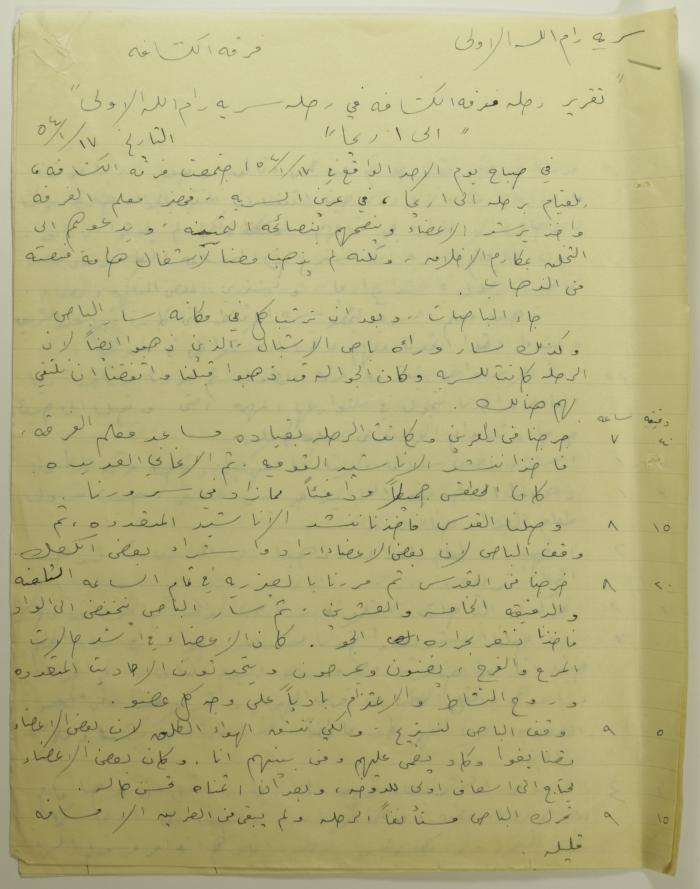 سريه رام الله الاولى
فرقه الكشافه
"تقرير رحله فرقه الكشافه في رحله سريه رام الله الاولى"
"الى اريحا" التاريخ ١٧/١/٥٤
في صباح يوم الاحد الواقع في ١٧/١/٥٤ اجتمعت فرقه الكشافه،
للقيام برحله الى اريحا، في عرين السريه. فحضر معلم الفرقه
واخذ يرشد الاعضاء وينصحهم بنصائحه الثمينه، ويدعوهم الى
التحلي بمكارم الاخلاق. ولكنه لم يذهب معنا لأشغال هامة منعته
من الذهاب.
جاء الباصات. وبعد ان ترتب كل في مكانه سار الباص
وكذلك سار وراءه باص الاشبال، الذين ذهبوا ايضاً لان
الرحله كانت للسريه وكان الجواله قد ذهبوا قبلنا واتفقنا ان نلتقي
بهم هنالك.
دقيقه ساعه
٤٠ ٧ خرجنا من العرين وكانت الرحله بقياده مساعد معلم الفرقه،
فاخذنا ننشد الاناشيد القوميه. ثم الاغاني العديده
كان الطقس جميلاً ودافئاً مما زاد في سرورنا.
١٥ ٨ وصلنا القدس فاخذنا ننشد الاناشيد المتعدده، ثم
وقف الباص لان بعض الاعضاء ارادوا شراء بعض الكعك.
٢٠ ٨ خرجنا من القدس ثم مررنا بالعيزريه في تمام الساعه الثامنه
والدقيقه الخامسه والعشرين. ثم سار الباص ينخفض الى الواد
فاخذنا نشعر بحراره الجو. كان الاعضاء في اشد حالات
المرح والفرح، يغنون ويمرحون ويتحدثون الاحاديث المتعدده
وروح النشاط والاعتزام بادياً على وجه كل عضو.
٥ ٩ وقف الباص لنستريح. ولكي نتنشق الهواء الطلق لان بعض الاعضاء
تضايقوا وكاد يغمى عليهم ومن بينهم انا. وكان بعض الاعضاء
يحتاج الى اسعاف اولي للدوخه، وبعد ان اتمناه تحسن حاله.
١٥ ٩ تحرك الباص مستأنفاً الرحله ولم يبقى من الطريق الا مسافه
قليله.